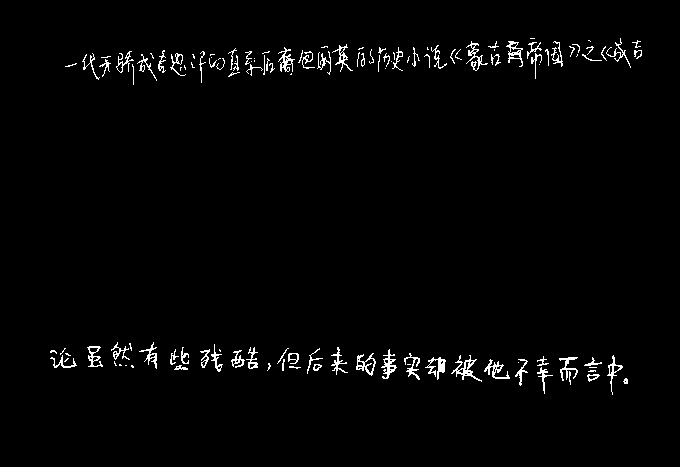 一代天骄成吉思汗的直系后裔包丽英的历史小说《蒙古帝国》之《成吉
论虽然有些残酷,但后来的事实却被他不幸而言中。